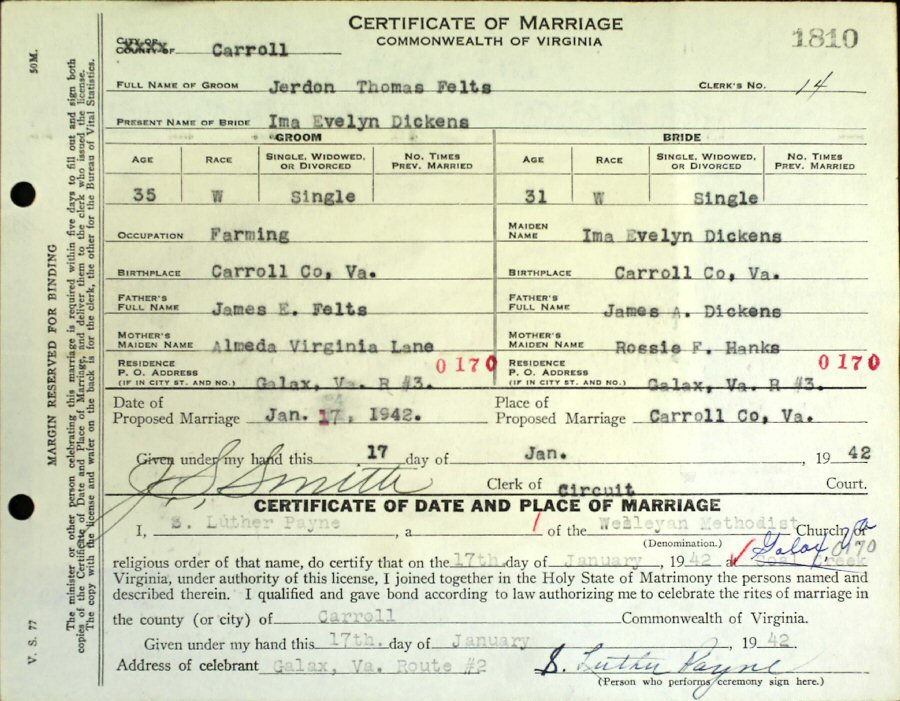 CERTIFICATE OF MARRIAGE
COMMONWEALTH OF VIRGINIA
1810
CITY OF
COUNTY OF Carroll
FULL NAME OF GROOM Jerdon Thomas Felts CLERK'S NO. 14
PRESENT NAME OF BRIDE Ima Evelyn Dickens
GROOM BRIDE
AGE RACE SINGLE, WIDOWED, OR DIVORCED NO. TIMES PREV. MARRIED AGE RACE SINGLE, WIDOWED, OR DIVORCED NO. TIMES PREV. MARRIED
35 W Single 31 W Single
OCCUPATION Farming MAIDEN NAME Ima Evelyn Dickens
BIRTHPLACE Carroll Co, Va. BIRTHPLACE Carroll Co, Va.
FATHER'S FULL NAME James E. Felts FATHER'S FULL NAME James A. Dickens
MOTHER'S MAIDEN NAME Almeda Virginia Lane MOTHER'S MAIDEN NAME Rossie F. Hanks
0170 0170
RESIDENCE P. O. ADDRESS (IF IN CITY ST. AND NO.) Galax, Va. R #3. RESIDENCE P. O. ADDRESS (IF IN CITY ST. AND NO.) Galax, Va. R #3.
Date of Proposed Marriage Jan. 17, 1942. Place of Proposed Marriage Carroll Co, Va.
Given under my hand this 17 day of Jan. , 19 42
J. S. Smith Clerk of Circuit Court.
CERTIFICATE OF DATE AND PLACE OF MARRIAGE
I, S. Luther Payne , a of the Wesleyan Methodist Church or
(Denomination.) Galax, Va 0170
religious order of that name, do certify that on the 17th day of January , 19 42 at Creek
Virginia, under authority of this license, I joined together in the Holy State of Matrimony the persons named and
described therein. I qualified and gave bond according to law authorizing me to celebrate the rites of marriage in
the county (or city) of Carroll Commonwealth of Virginia.
Given under my hand this 17th. day of January , 19 42
Address of celebrant Galax, Va. Route #2 S. Luther Payne
(Person who performs ceremony sign here.)
V. S. 77 50M.
MARGIN RESERVED FOR BINDING
The minister or other person celebrating this marriage is required within five days to fill out and sign both
copies of the Certificate of Date and Place of Marriage, and deliver them to the clerk who issued the license.
The copy with the license and wafer on the back is for the clerk, the other for the Bureau of Vital Statistics.